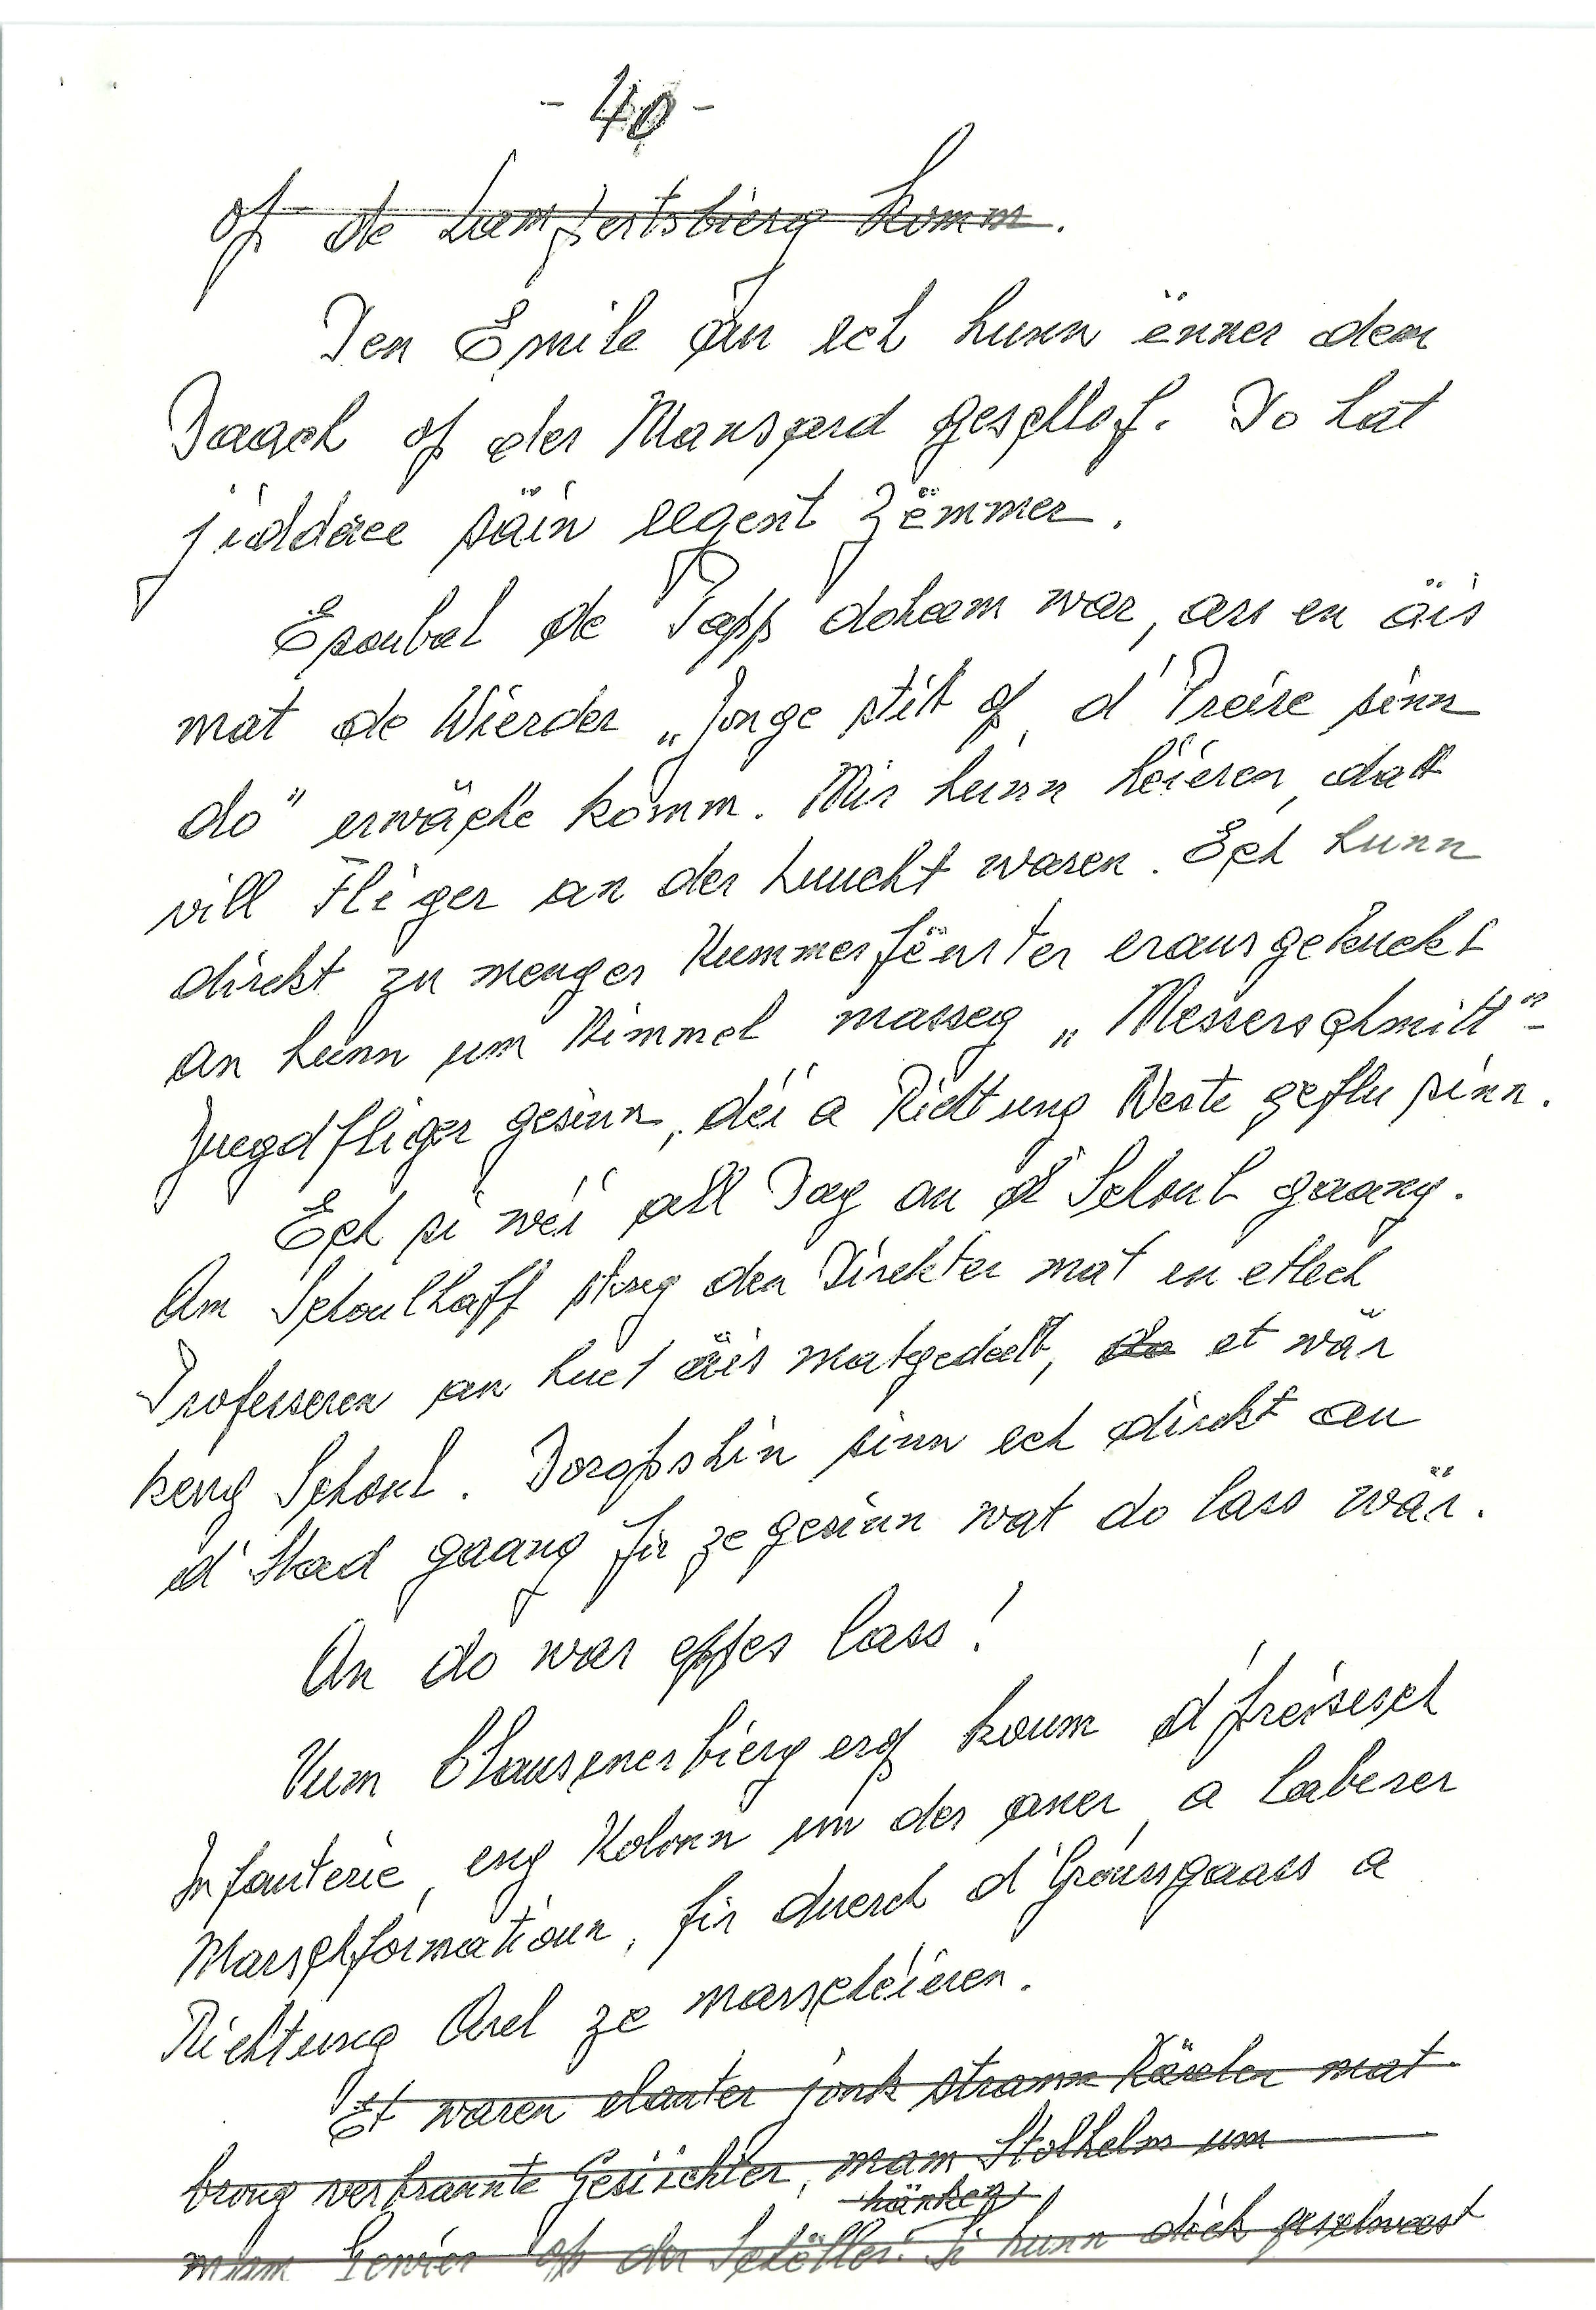 - 40 -
op de Lampertsbierg komm.
Den Emile an ech hunn ënner dem
Daach op der Mansard geschlof. Do hat
jiddäree säin eegent Zëmmer.
Esoubal de Papp doheem war, ass en äis
mat de Wierder „Jonge stitt op, d'Preise sinn
do" erwäche komm. Mir hunn héieren, datt
vill Fliger an der Luucht waren. Ech hunn
direkt zu menger Kummerfënster erausgekuckt
an hunn um Himmel masseg „Messerschmitt"-
Juegdfliger gesinn, déi a Richtung Weste geflu sinn.
Ech si wéi all Dag an d'Schoul gaang.
Am Schoulhaff stung den Direkter mat en etlech
Professeren an huet äis matgedeelt, do et wär
keng Schoul. Doropshin sinn ech direkt an
d'Stad gaang fir ze gesinn wat do lass wär.
An do war eppes lass!
Vum Clausenerbierg erof koum d'preisesch
Infanterie, eng Kolonn un der aner, a laberer
Marschformatioun, fir duerch d'Groussgaass a
Richtung Arel ze marschéieren.
Et waren elauter jonk stramm Kärelen mat
brong verbrannte Gesiichter, mam Stolhelm um
hänken
mam Gewier op der Schëller. Si hunn déck geschweest